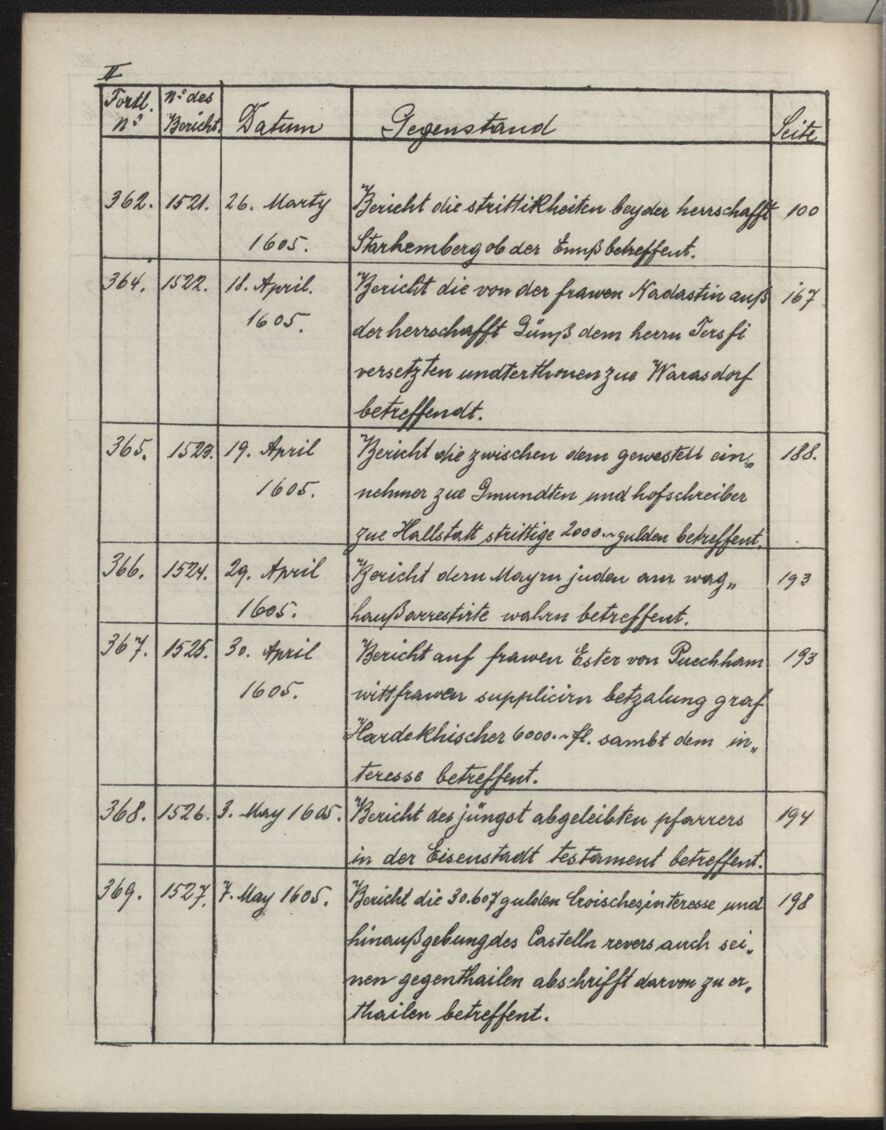 II
Fortl. Nº des
Nº Bericht. Datum Gegenstand Seite
362. 1521. 26. Marty Bericht die strittikheiten bey der herrschafft 100
1605. Starhemberg ob der Ennß betreffent.
364. 1522. 18. April. Bericht die von der frawen Nadastin auß 167
1605. der herrschafft Günß dem herrn Tersfi
versetzten undterthonen zue Warasdorf
betreffendt.
365. 1523. 19. April Bericht die zwischen dem gewestell ein„ 188.
1605. nehmer zue Gmundten und hofschreiber
zue Hallstatt strittige 2000.~ gulden betreffent.
366. 1524. 29. April Bericht dern Mayrn juden am wag„ 193
1605. hauß arrestirte wahrn betreffent.
367. 1525. 30. April Bericht auf frawen Ester von Puechham 193
1605. wittfrawen supplicirn betzalung graf
Hardekhischer 6000.~ fl. sambt dem in„
teresse betreffent.
368. 1526. 3. May 1605. Bericht des jüngst abgeleibten pfarrers 194
in der Eisenstadt testament betreffent.
369. 1527. 7. May 1605. Bericht die 30.607 gulden Croisches interesse und 198
hinaußgebung des Castelln revers auch sei„
nen gegenthailen abschrifft darvon zu er„
thailen betreffent.